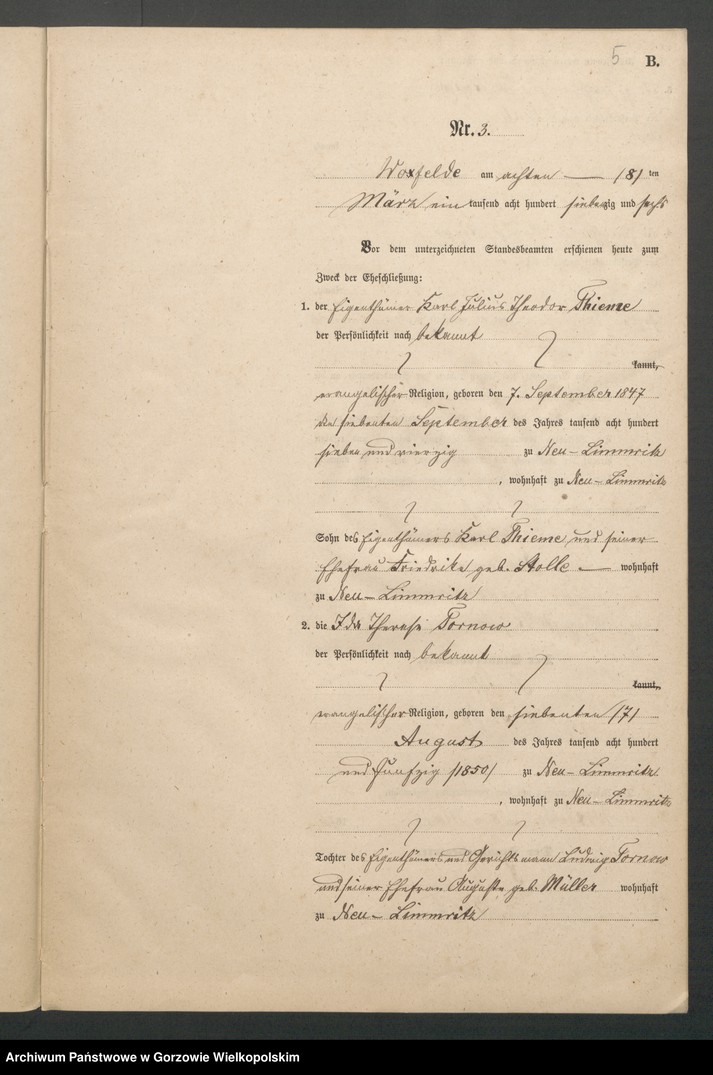 5 B.
Nr. 3.
Woxfelde am achten — /8/ ten
März ein tausend acht hundert siebenzig und sechs
Vor dem unterzeichneten Standesbeamten erschienen heute zum
Zweck der Eheschließung:
1. der Eigenthümer Karl Julius Theodor Thieme
der Persönlichkeit nach bekannt
kannt,
evangelischer Religion, geboren den 7. September 1847
den siebenten September des Jahres tausend acht hundert
sieben und vierzig zu Neu-Limmritz
, wohnhaft zu Neu-Limmritz
Sohn des Eigenthümers Karl Thieme und seiner
Ehefrau Friedrike geb. Stolle — wohnhaft
zu Neu-Limmritz
2. die Ida Therese Tornow
der Persönlichkeit nach bekannt
kannt,
evangelischer Religion, geboren den siebenten /7/
August des Jahres tausend acht hundert
und fünfzig /1850/ zu Neu-Limmritz
, wohnhaft zu Neu-Limmritz
Tochter des Eigenthümers und Gerichtsmann Ludwig Tornow
und seiner Ehefrau Auguste geb. Müller wohnhaft
zu Neu-Limmritz
Archiwum Państwowe w Gorzowie Wielkopolskim